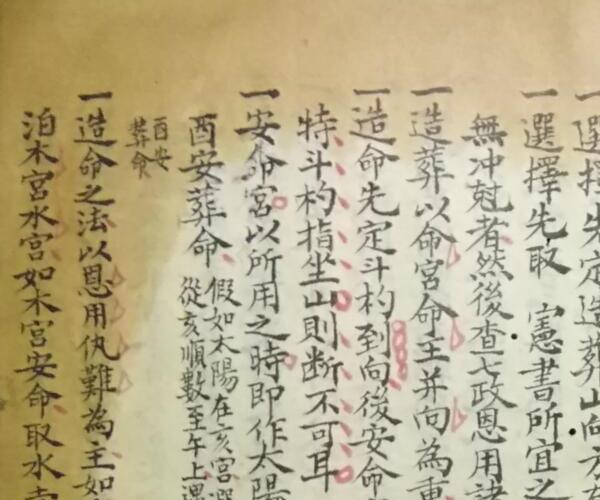 一選擇先定造葬山向方
一選擇先取 憲書所宜之
無冲尅者然後查七政恩用諸
一造葬以命宮命主并向為重
一造命先定斗杓到向後安命
特斗杓指坐山則斷不可耳
一安命宮以所用之時即作太陽
酉安葬命
假如太陽在亥宮
從亥順數至午上遇
酉安
葬命
一造命之法以恩用仇難為主如
泊木宮水宮如木宮安命取水